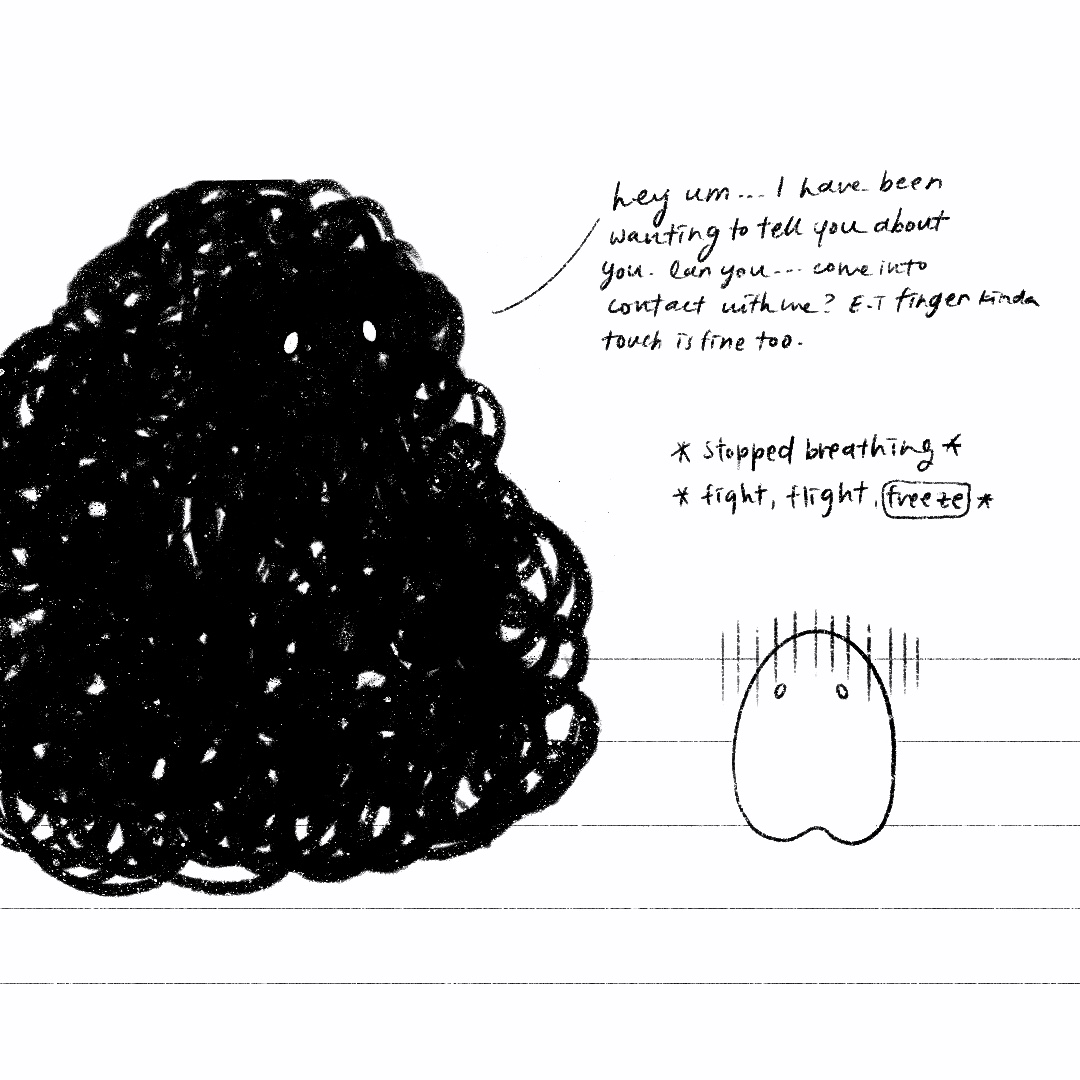 hey um... I have been
wanting to tell you about
you. Can you... come into
contact with me? E.T finger kinda
touch is fine too.
* stopped breathing *
* fight, flight, freeze *